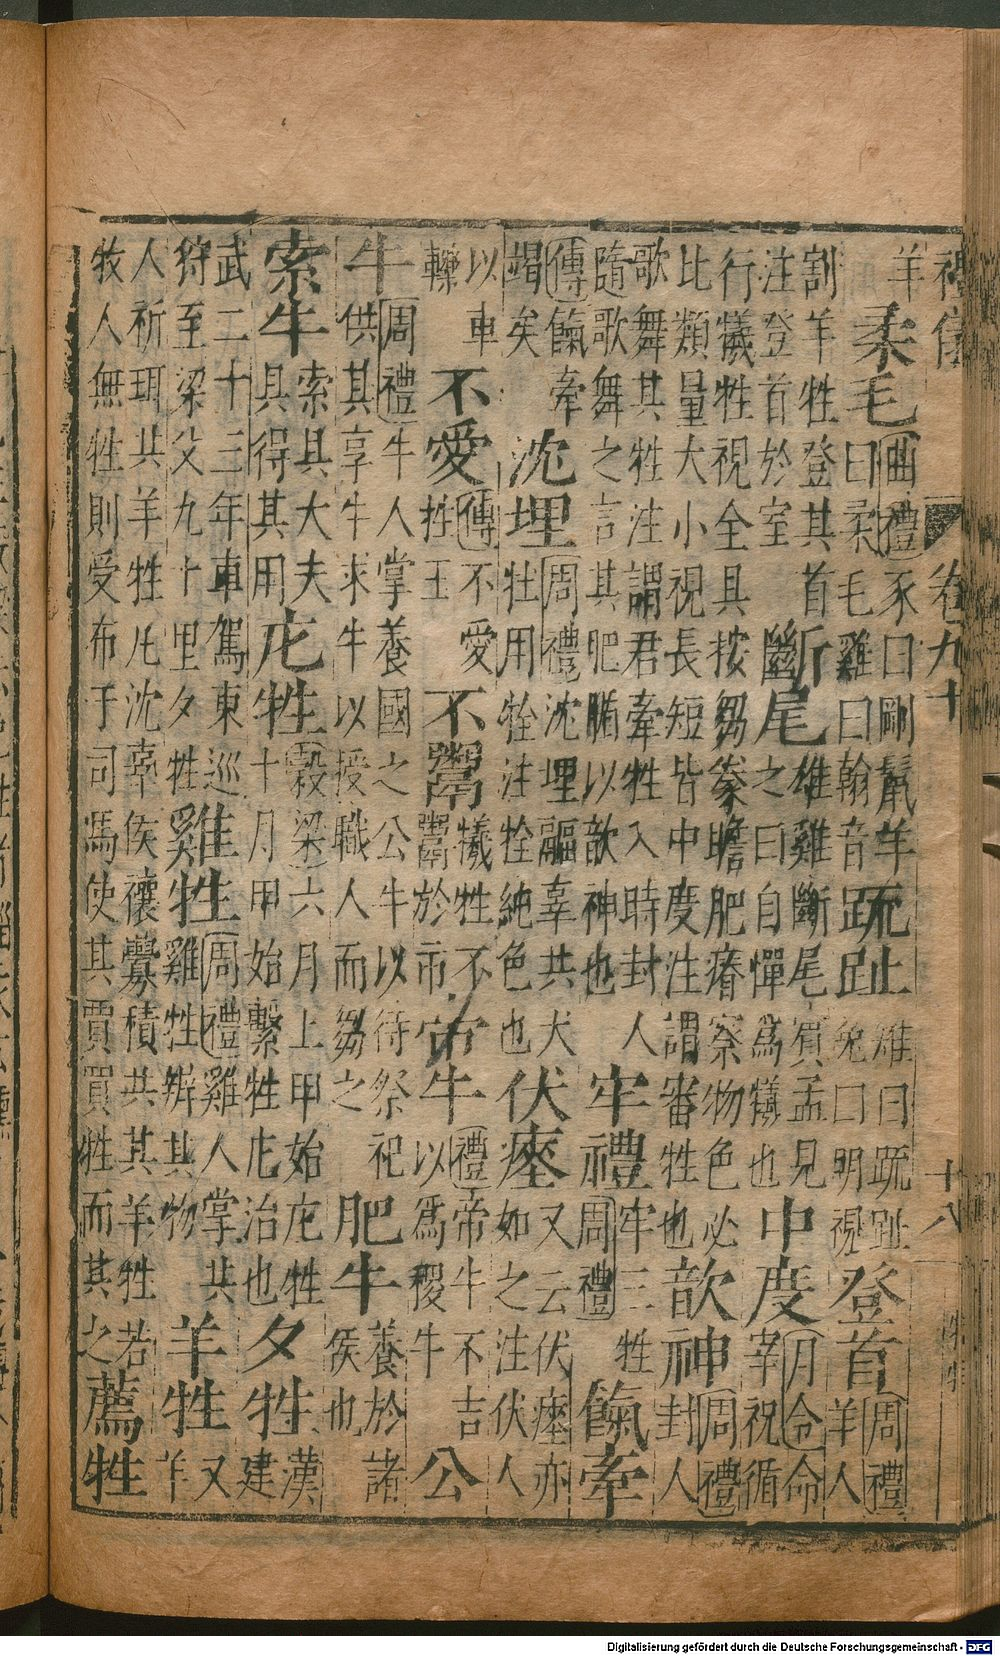 禮儀 卷九十 十八
羊
柔毛
曲禮豕曰剛鬣羊
曰柔毛雞曰翰音
疏趾
雉曰疏趾
兔曰明視
登首
周禮
羊人
割羊牲登其首
注登首於室
斷尾
雄雞斷尾賓孟見
之曰自憚爲犧也
中度
月令命
宰祝循
行犧牲視全具按芻豢瞻肥瘠察物色必
比類量大小視長短皆中度注謂審牲也
歆神
周禮
封人
歌舞其牲注謂君牽牲入時封人
隨歌舞之言其肥腯以歆神也
牢禮
牢三牲
周禮
餼牽
傳餼牽
竭矣
沈埋
周禮沈埋疈辜共犬
牡用牷注牷純色也
伏瘞
又云伏瘞亦
如之注伏人
以車
轢
不愛
傳不愛
牲玉
不鬻
犧牲不
鬻於市
帝牛
禮帝牛不吉
以爲稷牛
公
牛
周禮牛人掌養國之公牛以待祭祀
供其享牛求牛以授職人而芻之
肥牛
養於諸
侯也
索牛
索具大夫
具得其用
庀牲
穀梁六月上甲始庀牲
十月甲始繫牲庀治也
夕牲
漢
建
武二十三年車駕東巡
狩至梁父九十里夕牲
雞牲
周禮雞人掌共
雞牲辨其物
羊牲
又
羊
人祈珥共羊牲凡沈辜侯禳釁積共其羊牲若
牧人無牲則受布于司馬使其賈買牲而其之
薦牲
Digitalisierung gefördert durch die Deutsche Forschungsgemeinschaft - DFG